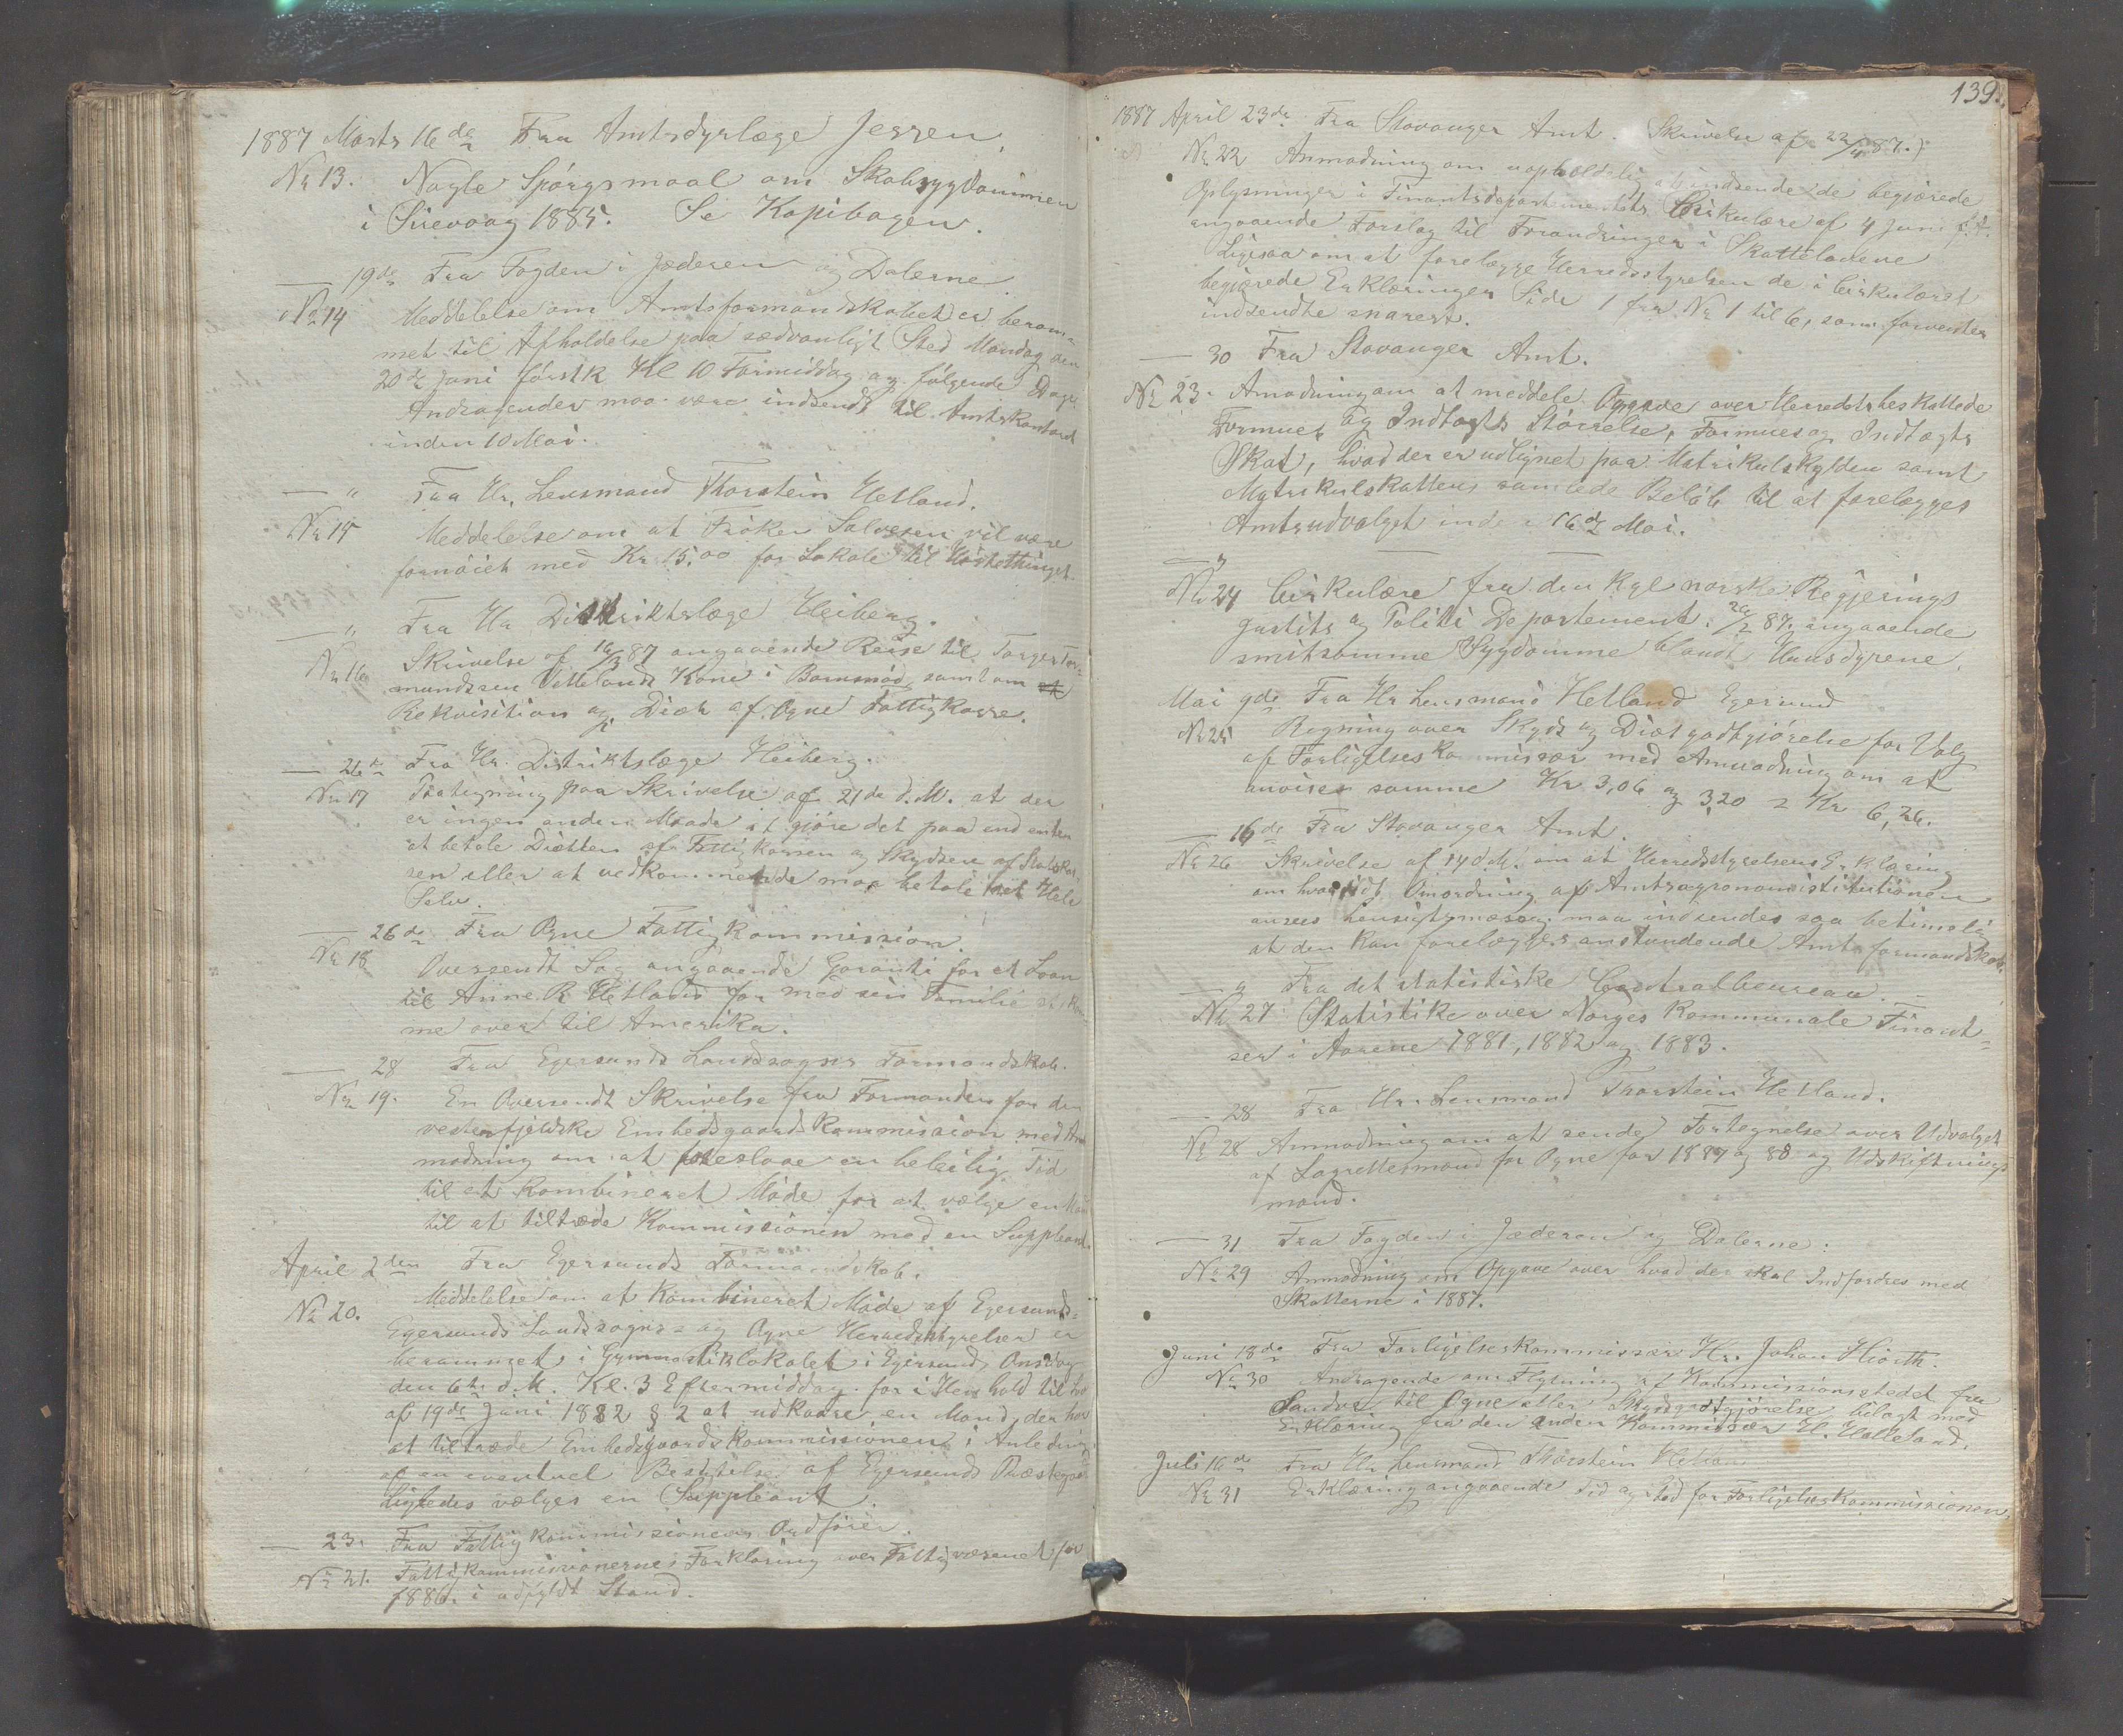 1887 Marts 16de Fra Amtsdyrlæge Jessen.
No 13. Nogle Spørgsmaal om Skabsygdommen
i Sirevaag 1885. Se Kopibogen.
— 19de Fra Fogden i Jæderen og Dalerne.
No 14 Meddelelse om Amtsformandskabet er beram-
met til Afholdelse paa sædvanligt Sted Mandag den
20de Juni førstk Kl 10 Formiddag og følgende Dage
Andragender maa være indsendt til Amtskontord
inden 10 Mai.
— " Fra Hr. Lensmand Thorstein Hetland.
No 15 Meddelelse om at Frøken Salvesen vil være
fornøiet med Kr 15,00 for Lokale til Høstethinget.
— " Fra Hr Distriktslæge Heiberg.
No 16 Skrivelse af 16/3 87 angaaende Reise til Torger Tor-
mundssen Vettelands Kone i Barnsnød, samt om
Rekvisition og Diæt af Ogne Fattigkasse.
— 26de Fra Hr. Distriktslæge Heiberg.
No 17 Paategning paa Skrivelse af 21de d.M. at der
er ingen anden Maade at gjøre det paa end enten
at betale Diæten af Fattigkassen og Skydsen af Statskas-
sen eller at vedkommende maa betale det Hele
Selv.
— 26de Fra Ogne Fattigkommission.
No 18 Oversendt Sag angaaende Garanti for et Laan
til Anne R Hetland for med sin Familie at kom-
me over til Amerika.
— 28 Fra Egersunds Landsogns Formandskab.
No 19. En Oversendt Skrivelse fra Formanden for den
vestenfjeldske Embedsgaardskommission med An-
modning om at foreslaae en beleilig Tid
til et kombineret Møde for at vælge en Man
til at tiltræde Kommissionen med en Suppleant.
April 2den Fra Egersunds Formandskab.
No 20. Meddelelse om at Kombineret Møde af Egersunds-
Egersunds Landsogns- og Ogne Herredsstyrelser er
berammet i Gymnastiklokalet i Egersund, Onsdag
den 6te d.M. Kl. 3 Eftermiddag for i Henhold til Lov
af 19de Juni 1882 § 2 at udkaare en Mand, der har
at tiltræde Embedsgaardskommissionen i Anledning
af en eventuel Besigtelse af Egersunds Præstegaar
Ligeledes vælges en Suppleant.
— 23. Fra Fattigkommissionens Ordfører.
No 21. Fattigkommissionernes Forklaring over Fattigvæsenet for
1886. i udfyldt Stand.
139.
1887 April 23de Fra Stavanger Amt. Skrivelse af 22/4 87.)
No 22 Anmodning om uopholdelig at indsende de begjærede
Oplysninger i Finantsdepartementets Cirkulære af 4 Juni f.A.
angaaende Forslag til Forandringer i Skattelovene
Ligesaa om at forelægge Herredsstyrelsen de i Cirkulæret
begjærede Erklæringer Side 1 fra No 1 til 6, som forventes
indsendte snarest.
— 30 Fra Stavanger Amt.
No 23. Amodning om at meddele Opgave over Herredets beskattede
Formues og Indtægts Størrelse, Formues og Indtægts
Skat, hvad der er udlignet paa Matrikulskylden samt
Matrikulskattens samlede Beløb til at forelægges
Amtsudvalget inden 16de Mai.
— "
No 24 Cirkulære fra den Kgl norske Regjerings
Justits og Politi Departement. 26/2 87. angaaende
smitsomme Sygdomme blandt Huusdyrene.
Mai 9de Fra Hr Lensmand Hetland Egersund
No 25 Regning over Skyds og Diætgodtgjørelse for Valg
af Forligelseskommissær med Anmodning om at
anvises samme Kr 3,06 og 3,20 = Kr 6,26.
— 16de Fra Stavanger Amt.
No 26 Skrivelse af 14 d.M. om at Herredsstyrelsens Erklæring
om hvorvidt Omordning af Amtsagronomistitutionen
ansees hensigtsmæssig. maa indsendes saa betimelig
at den kan forelægges anstundende Amtsformandskab.
— " Fra det statistiske Centralbureau.
No 27 Statistike over Norges Kommunale Finant-
ser i Aarene 1881, 1882 og 1883.
— 28 Fra Hr. Lensmand Thorstein Hetland.
No 28 Anmodning om at sende Fortegnelse over Udvalget
af Lagrettesmænd for Ogne for 1887 og 88 og Udskiftnings
mænd.
— 31 Fra Fogden i Jæderen og Dalerne.
No 29 Anmodning om Opgave over hvad der skal Indfordres med
Skatterne i 1887.
Juni 18de Fra Forligelseskommissær Hr. Johan Hiorth.
No 30 Andragende om Flytning af Kommissionsstedet fra
til Ogne eller Skydsgodtgjørelse bilagt med
Erklæring fra den anden Kommissær H. Helleland.
Juli 16de Fra Hr Lensmand Thorstein Hetland
No 31 Erklæring angaaende Tid og Sted for Forligelseskommissionen.